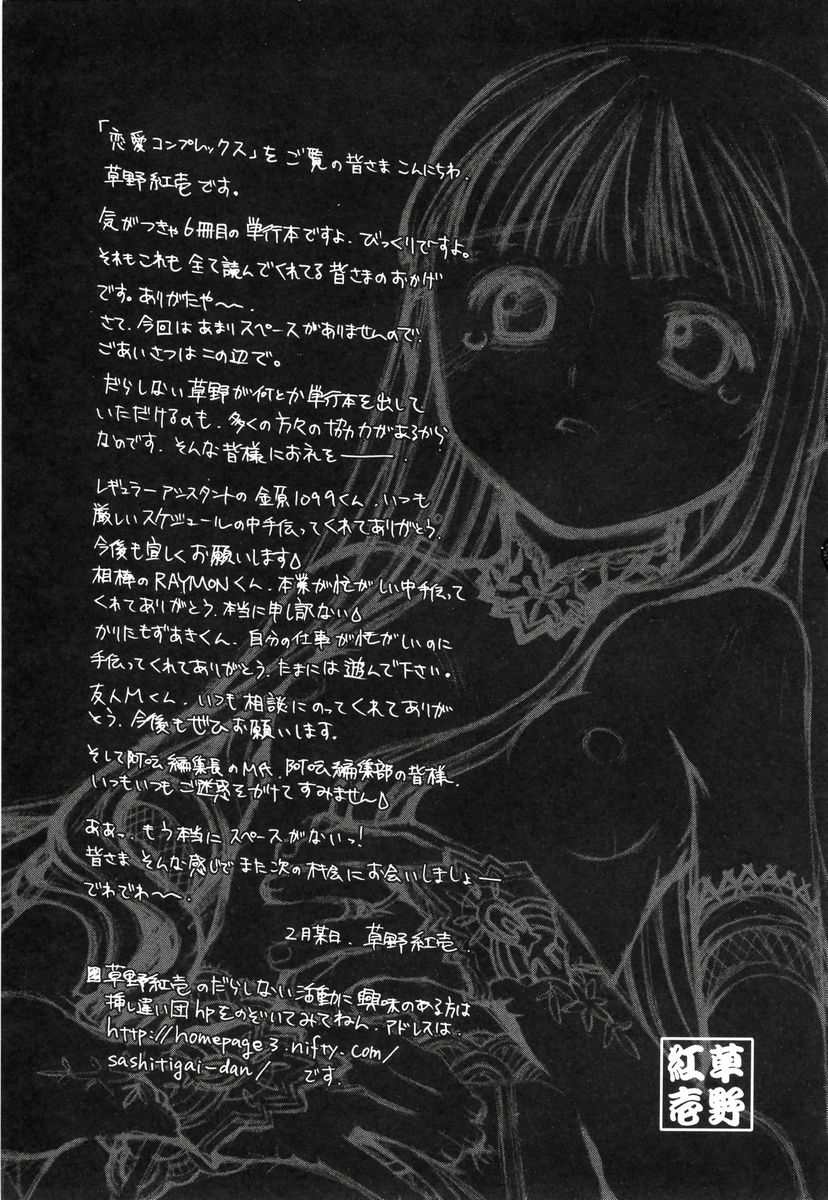 「恋愛コンプレックス」をご覧の皆さまこんにちわ.
草野紅壱です。
気がつきゃ6冊目の単行本ですよ.びっくりですよ。
それもこれも全て読んでくれてる皆さまのおかげ
です。ありがたや〜〜.
さて、今回はあまりスペースがありませんので.
ごあいさつはこの辺で。
だらしない草野が何とか単行本を出して
いただけるのも、多くの方々の協力があるから
なのです.そんな皆様にお礼を――――.
レギュラーアシスタントの金原1099くん.いつも
厳しいスケジュールの中手伝ってくれてありがとう.
今後も宜しくお願いします△
相棒のRAYMONくん、本業が忙がしい中手伝って
くれてありがとう.本当に申し訳ない△
かりたもずあきくん、自分の仕事が忙がしいのに
手伝ってくれてありがとう.たまには遊んで下さい。
友人Mくん.いつも相談にのってくれてありが
とう.今後もぜひお願いします。
そして阿吽編集長のM氏.阿吽編集部の皆様.
いつもいつもご迷惑をかけてすみません△
ああっ.もう本当にスペースがないっ!
皆さまそんな感じでまた次の機会にお会いしましょー
でわでわ〜〜.
2月某日.草野紅壱.
草野紅壱のだらしない活動に興味のある方は
挿し違い団hpをのぞいてみてねん.アドレスは.
http://homepage3.nifty.com/
sashitigai-dan/ です.
草野
紅壱